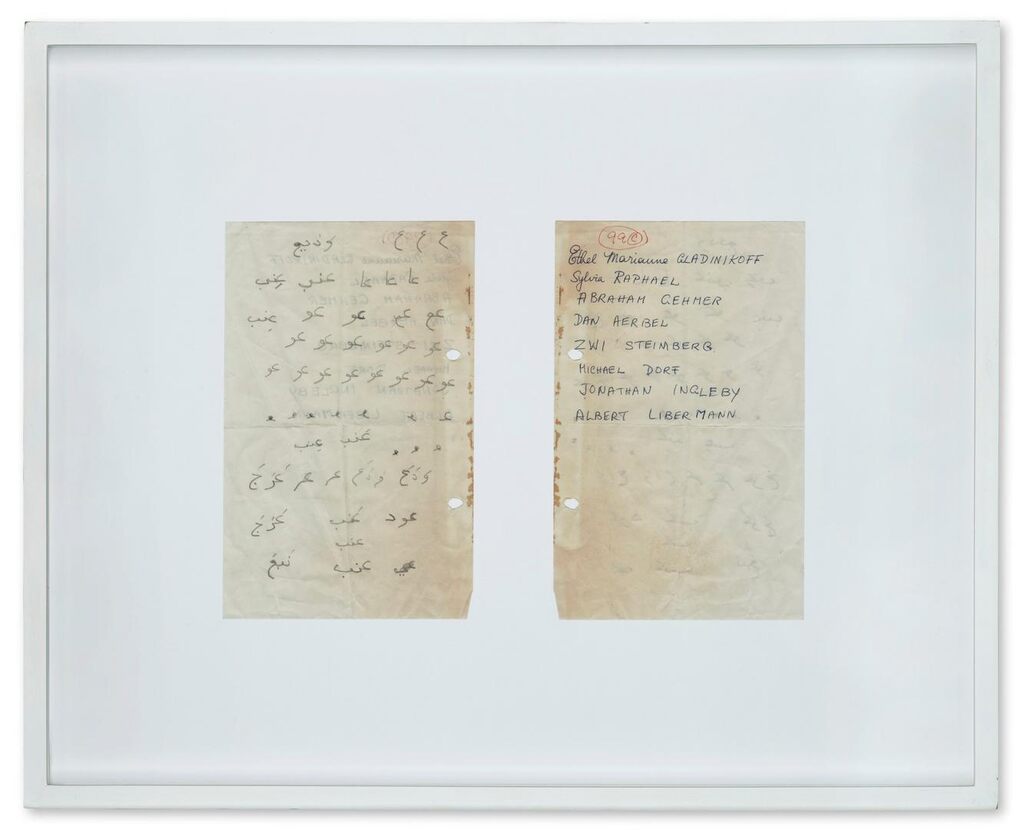 ع ع ع وديع
عا عا عا عنب عنب
عو عو عو عو عنب
عو عو عو عو عو عو
عو عو عو عو عو عو عو عو
عنب عنب
ودع ودع عر عر
عود عنب
عنب
عنب نبع
99(C)
Ethel Marianne GLADINIKOFF
Sylvia RAPHAEL
ABRAHAM GEHMER
DAN AERBEL
ZWI STEIMBERG
MICHAEL DORF
JONATHAN INGLEBY
ALBERT LIBERMANN